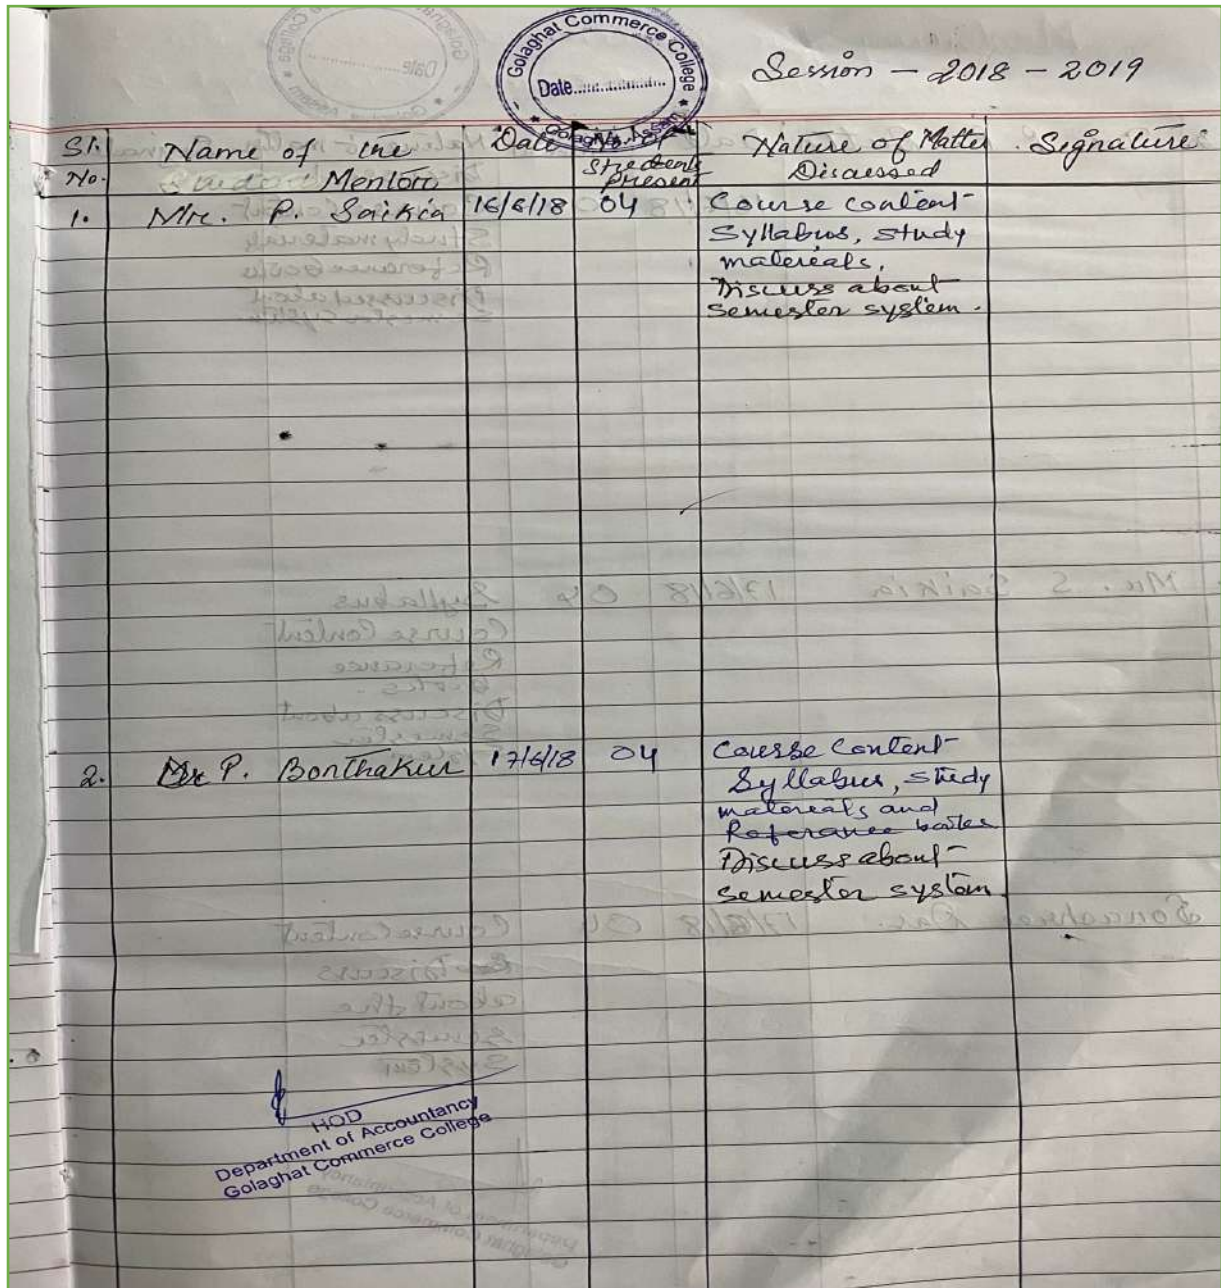 Golaghat Commerce College
Date................
Golaghat, Assam
Session - 2018 - 2019
Sl. No. Name of the Mentor Date No. of students present Nature of Matter Discussed Signature
1. Mr. P. Saikia 16/6/18 04 Course content
Syllabus, study
materials,
Discuss about
semester system.
2. P. Borthakur 17/6/18 04 Course Content
Syllabus, study
materials and
Referance
Discuss about
semester system
HOD
Department of Accountancy
Golaghat Commerce College